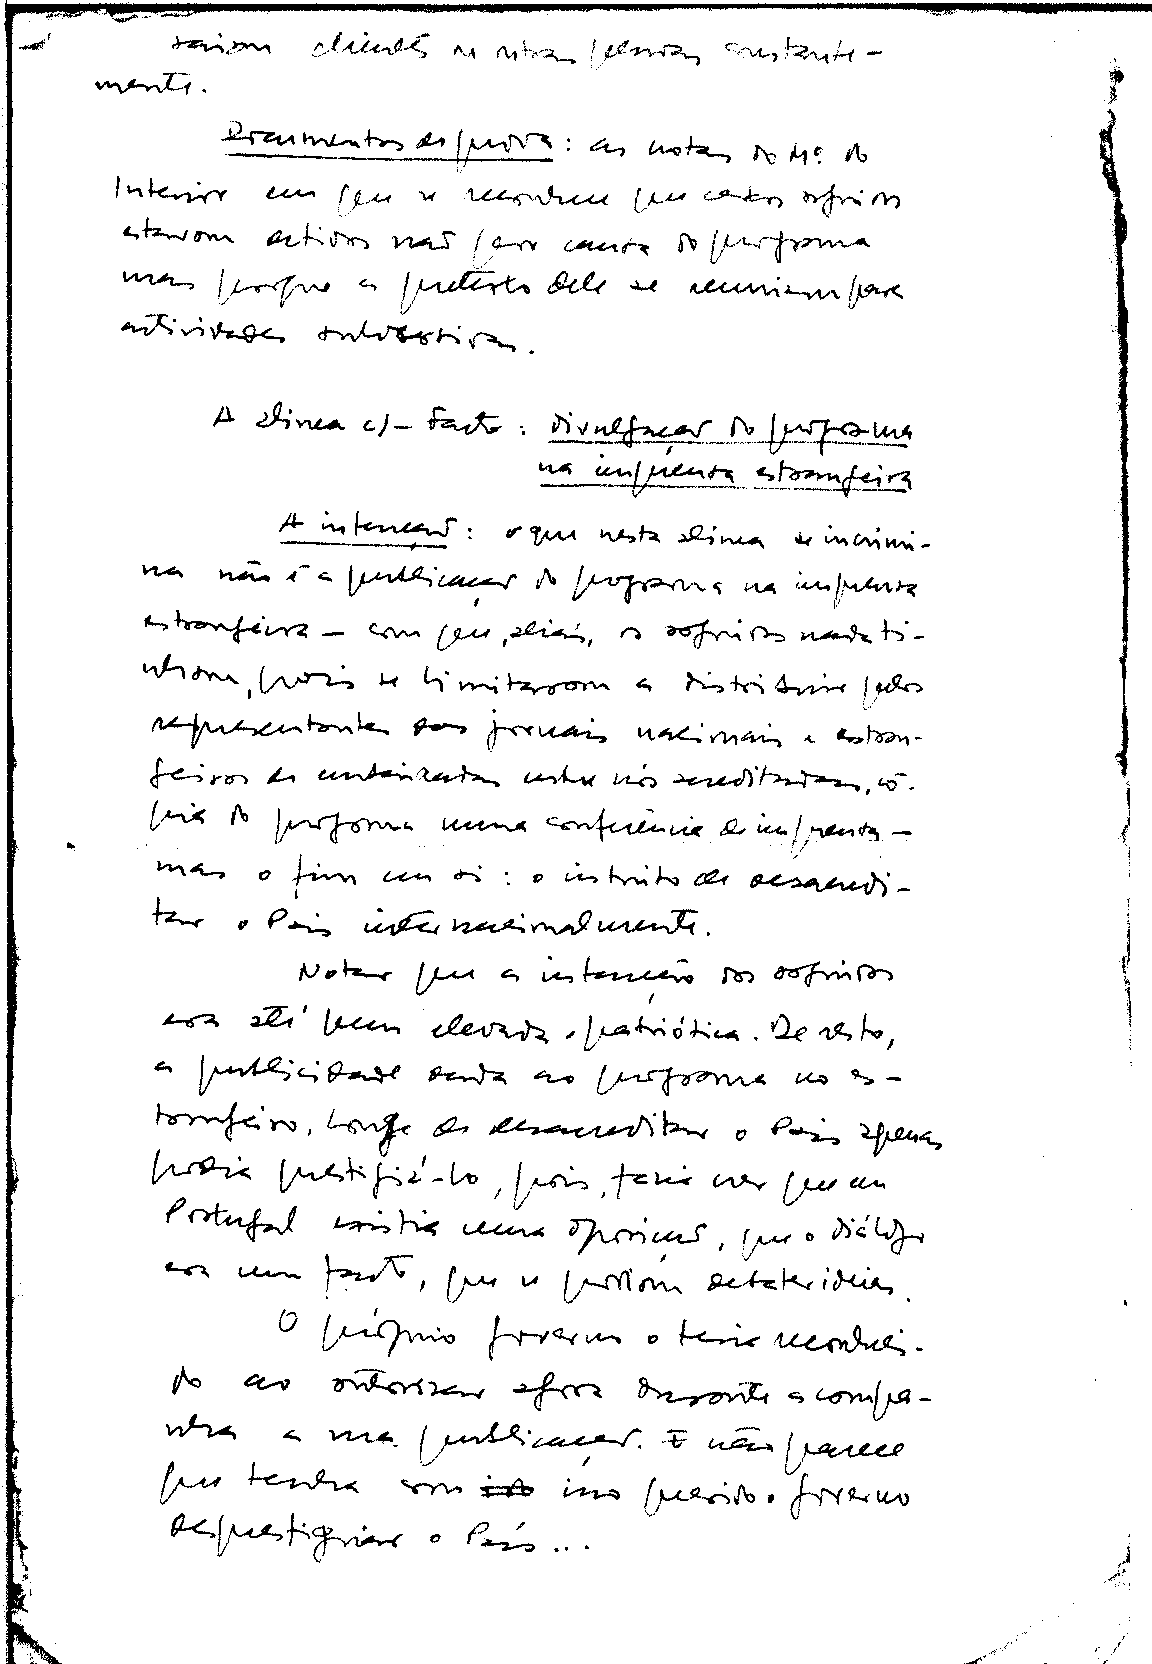 clientes e outras pessoas constante-
mente.
Documentos de prova: as notas do Mº. do
Interior em que se reconhece que certos arguidos
estavam detidos não por causa do programa
mas porque a pretexto dele se reuniam para
actividades subversivas.
A alinea c) - facto: divulgação do programa
na imprensa estrangeira
A intenção: o que nesta alinea se incrimi-
na não é a publicação do programa na imprensa
estrangeira - com que, aliás, os arguidos nada ti-
nham, pois se limitaram a distribuir pelos
representantes dos jornais nacionais e estran-
geiros entre nós acreditados, có-
pia do programa numa conferência de imprensa -
mas o fim em si: o intuito de desacredi-
tar o País internacionalmente.
Notar que a intenção dos arguidos
era até bem elevada e patriótica. De resto,
a publicidade dada ao programa no es-
trangeiro, longe de desacreditar o País apenas
podia prestigiá-lo, pois, fazia ver que em
Portugal existia uma oposição, que o diálogo
era um facto, que se podiam debater ideias.
O próprio governo o teria reconheci-
do ao autorizar agora durante a campa-
nha a sua publicação. E não parece
que tenha com isso querido o governo
desprestigiar o País...